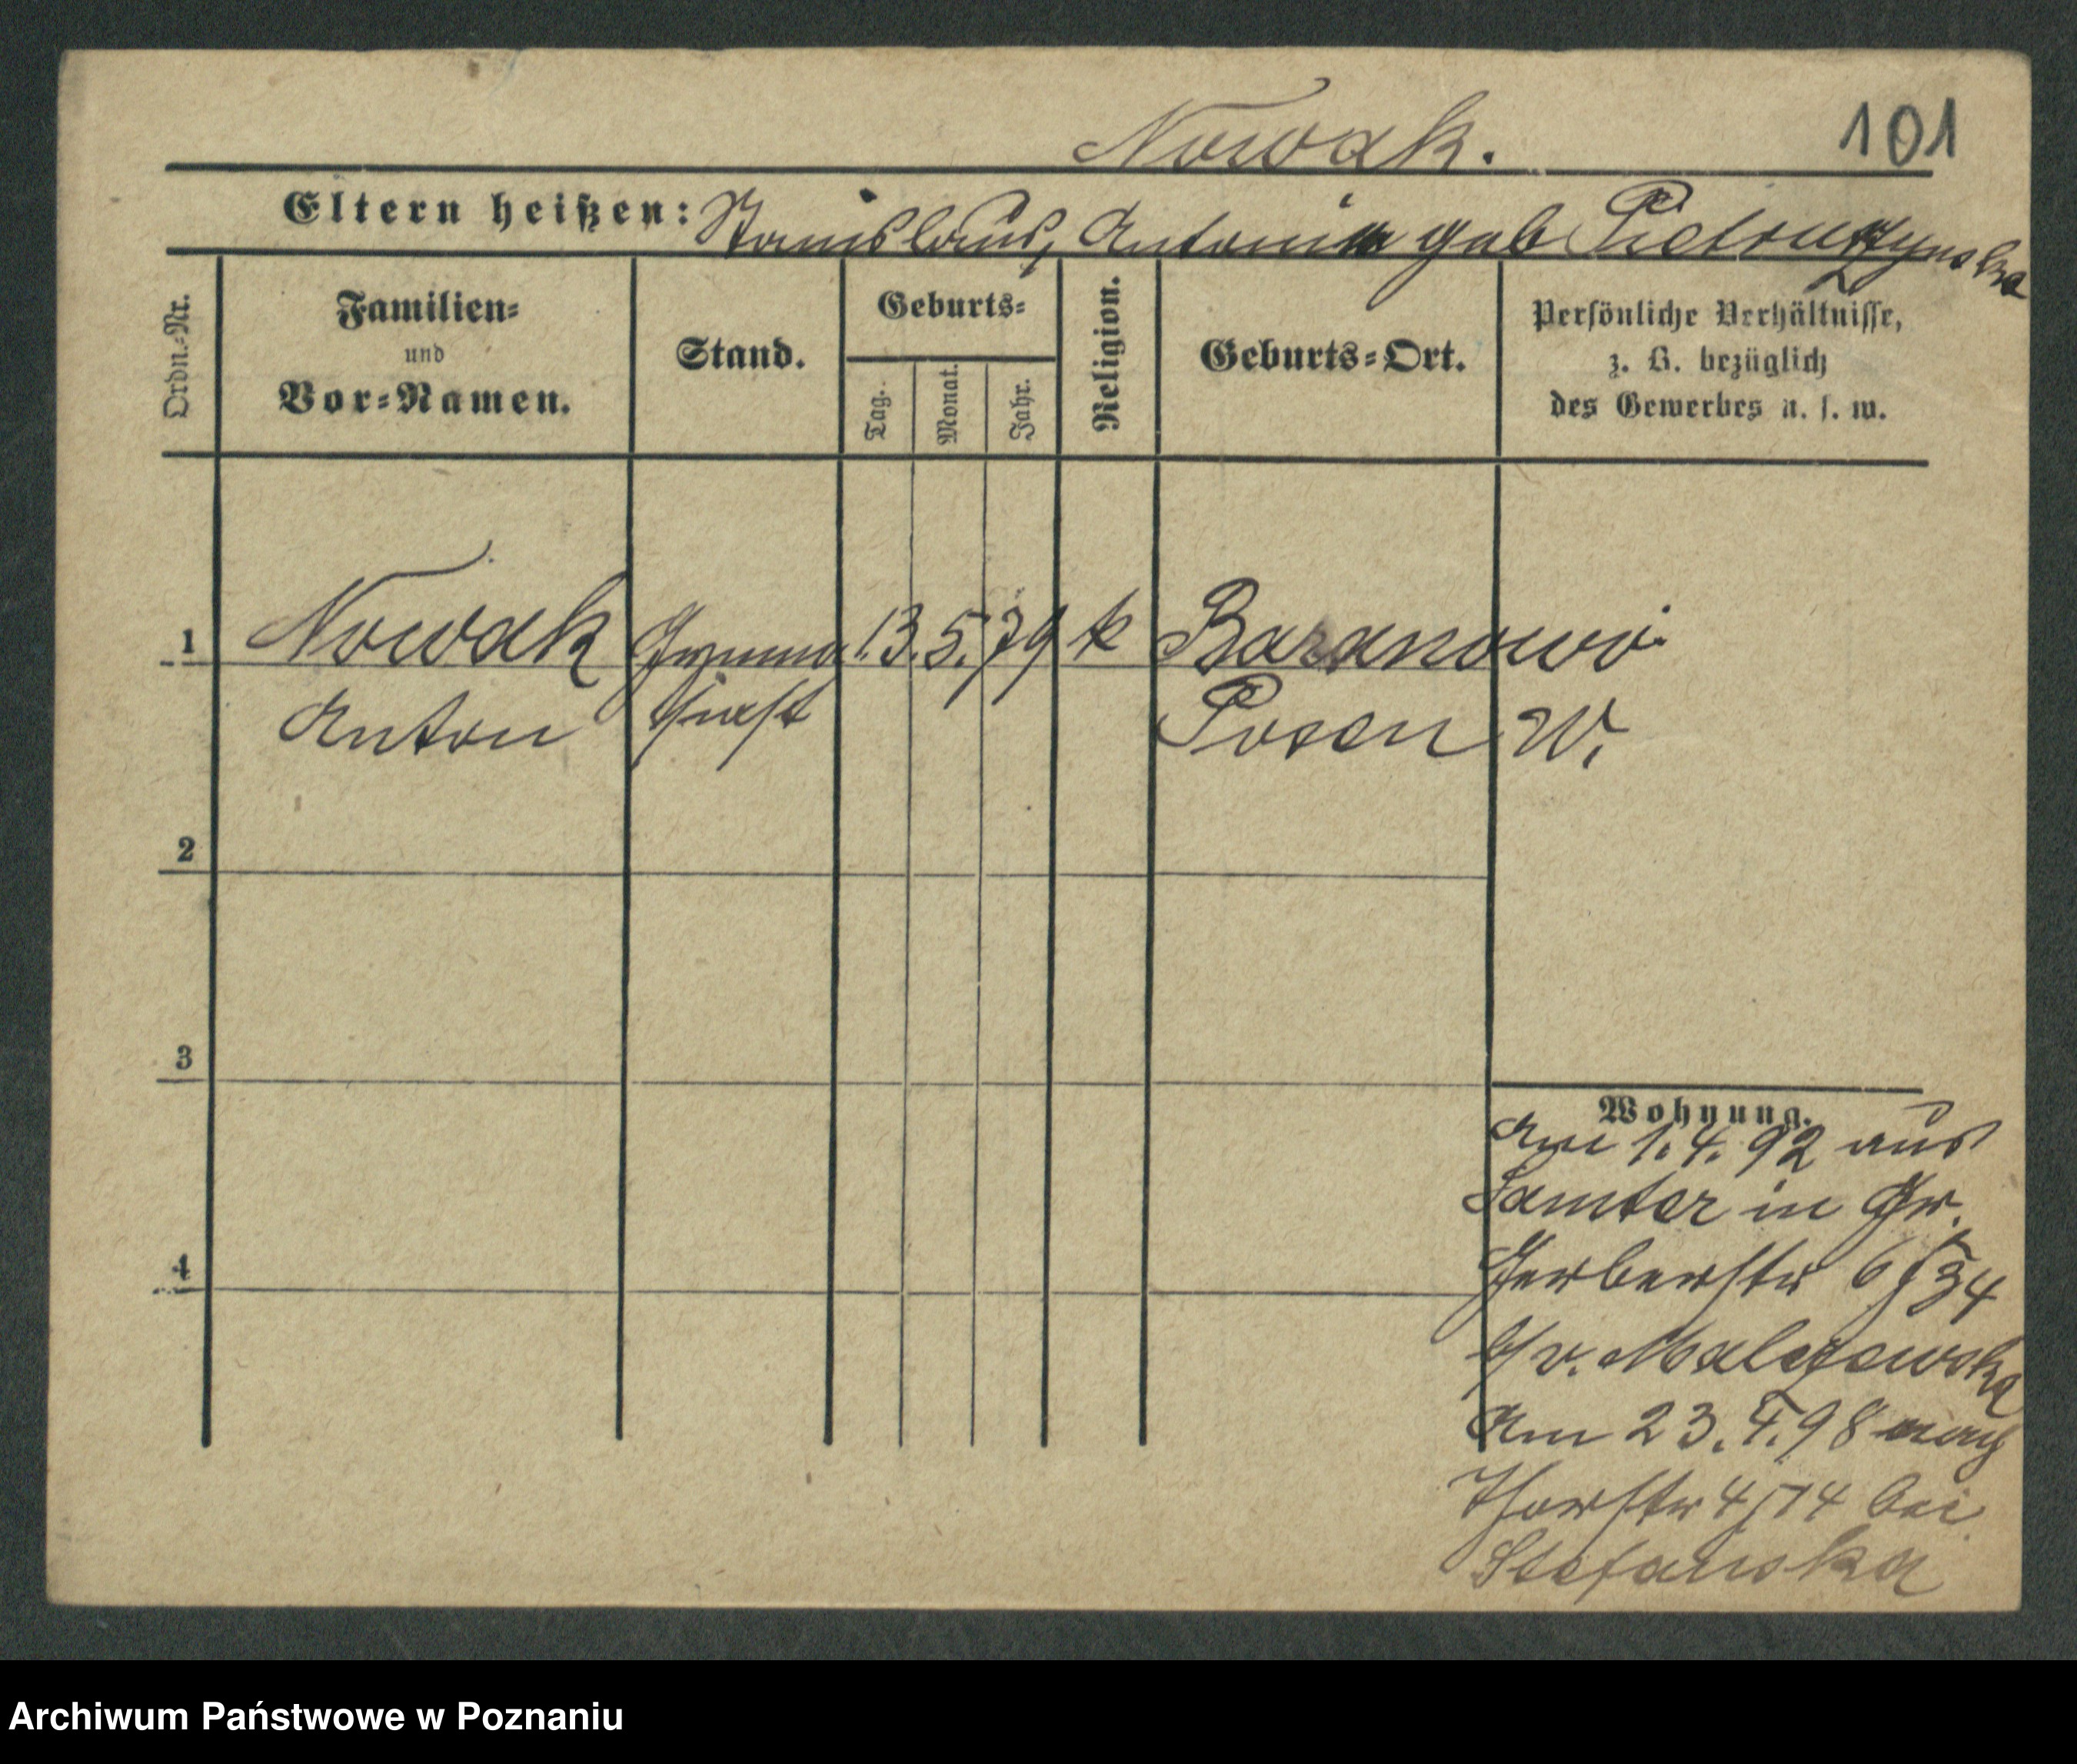 Nowak.
101
Eltern heißen: Stanislaus, Antonia geb Pietruszynska
Ordn.-Nr.
Familien-
und
Vor-Namen.
Stand.
Geburts-
Tag.
Monat.
Jahr.
Religion.
Geburts-Ort.
Persönliche Verhältnisse,
z. B. bezüglich
des Gewerbes u. s. w.
1 Nowak Gymna 13. 5. 79 k Baranowo
Anton siast Posen W.
2
3
4
Wohnung.
Am 1. 4. 92 aus
Samter in Gr.
Gerberstr 6/34
b/v.
Am 23. 4. 98 nach
Thorstr 4/14 bei
Stefanska
Archiwum Państwowe w Poznaniu